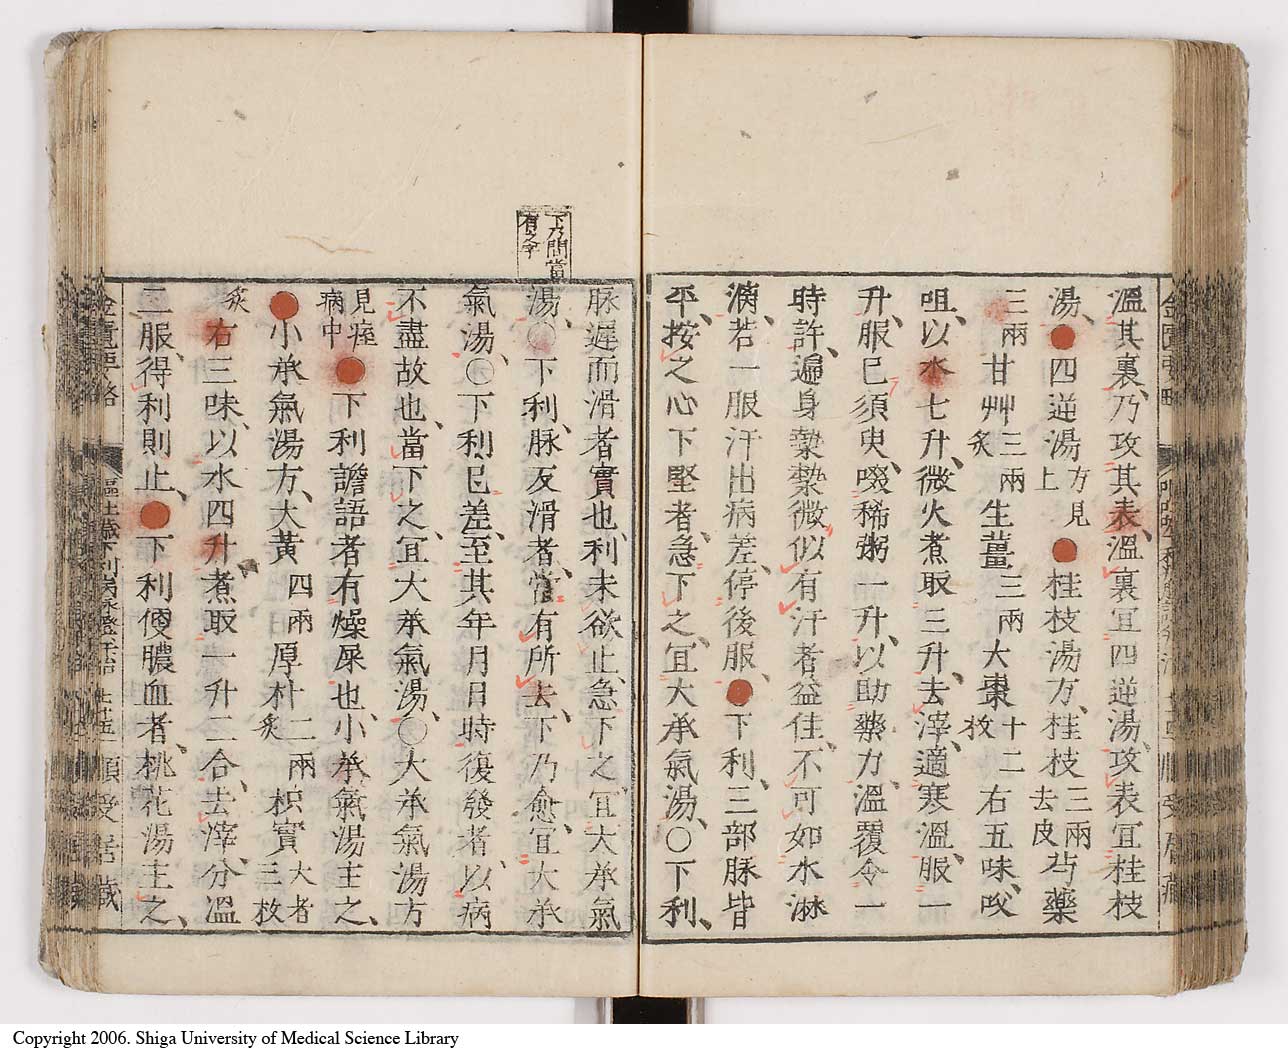 溫其裏、乃攻其表、溫裏宜四逆湯、攻表宜桂枝
湯、●四逆湯方見上●桂枝湯方、桂枝三兩去皮芍藥
三兩甘艸三兩炙生薑三兩大棗十二枚右五味、㕮
咀、以水七升、微火煮取三升、去滓、適寒溫、服一
升、服已須臾、啜稀粥一升、以助藥力、溫覆令一
時許、遍身漐漐微似有汗者益佳、不可如水淋
漓、若一服汗出病差、停後服、●下利、三部脉皆
平、按之心下堅者、急下之、宜大承氣湯、○下利、
脉遲而滑者實也、利未欲止、急下之、宜大承氣
湯、○下利、脉反滑者、當有所去、下乃愈、宜大承
氣湯、○下利已差、至其年月日時復發者、以病
不盡故也、當下之、宜大承氣湯、○大承氣湯方
見痙病中●下利譫語者有燥屎也、小承氣湯主之、
●小承氣湯方、大黃四兩厚朴二兩炙枳實大者三枚
炙右三味、以水四升煮取一升二合、去滓、分溫
二服、得利則止、●下利便膿血者、桃花湯主之、
下乃間當
有之字